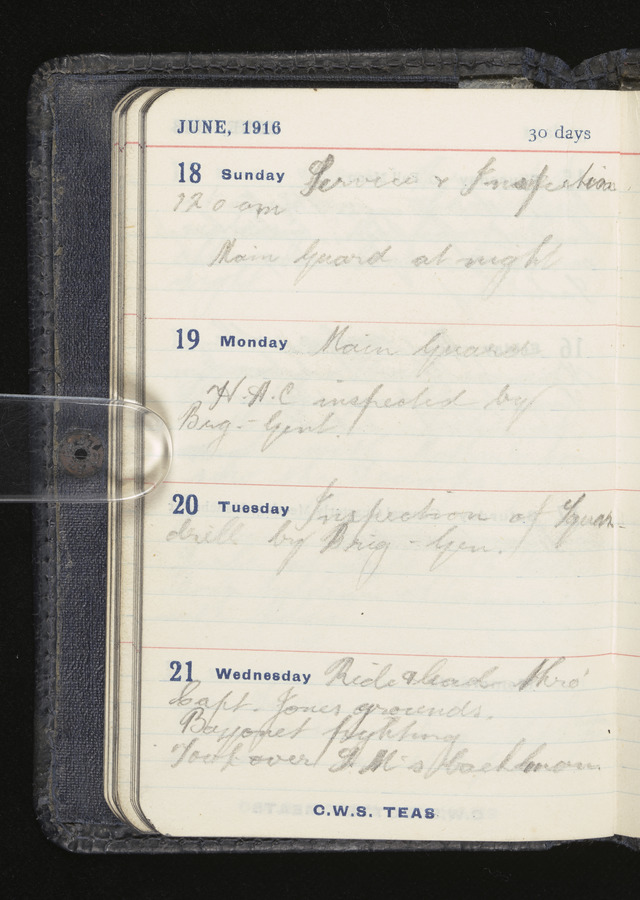 JUNE, 1916 30 days
18 Sunday Service & Inspection
12 0 am
Main Guard at night
19 Monday Main Guard
H.A.C inspected by
Brig.-Genl.
20 Tuesday Inspection of Squad-
drill by Brig-Gen.
21 Wednesday Ride & lead thro'
Capt. Jones grounds.
Bayonet fighting
Took over S.M's
C.W.S. TEAS